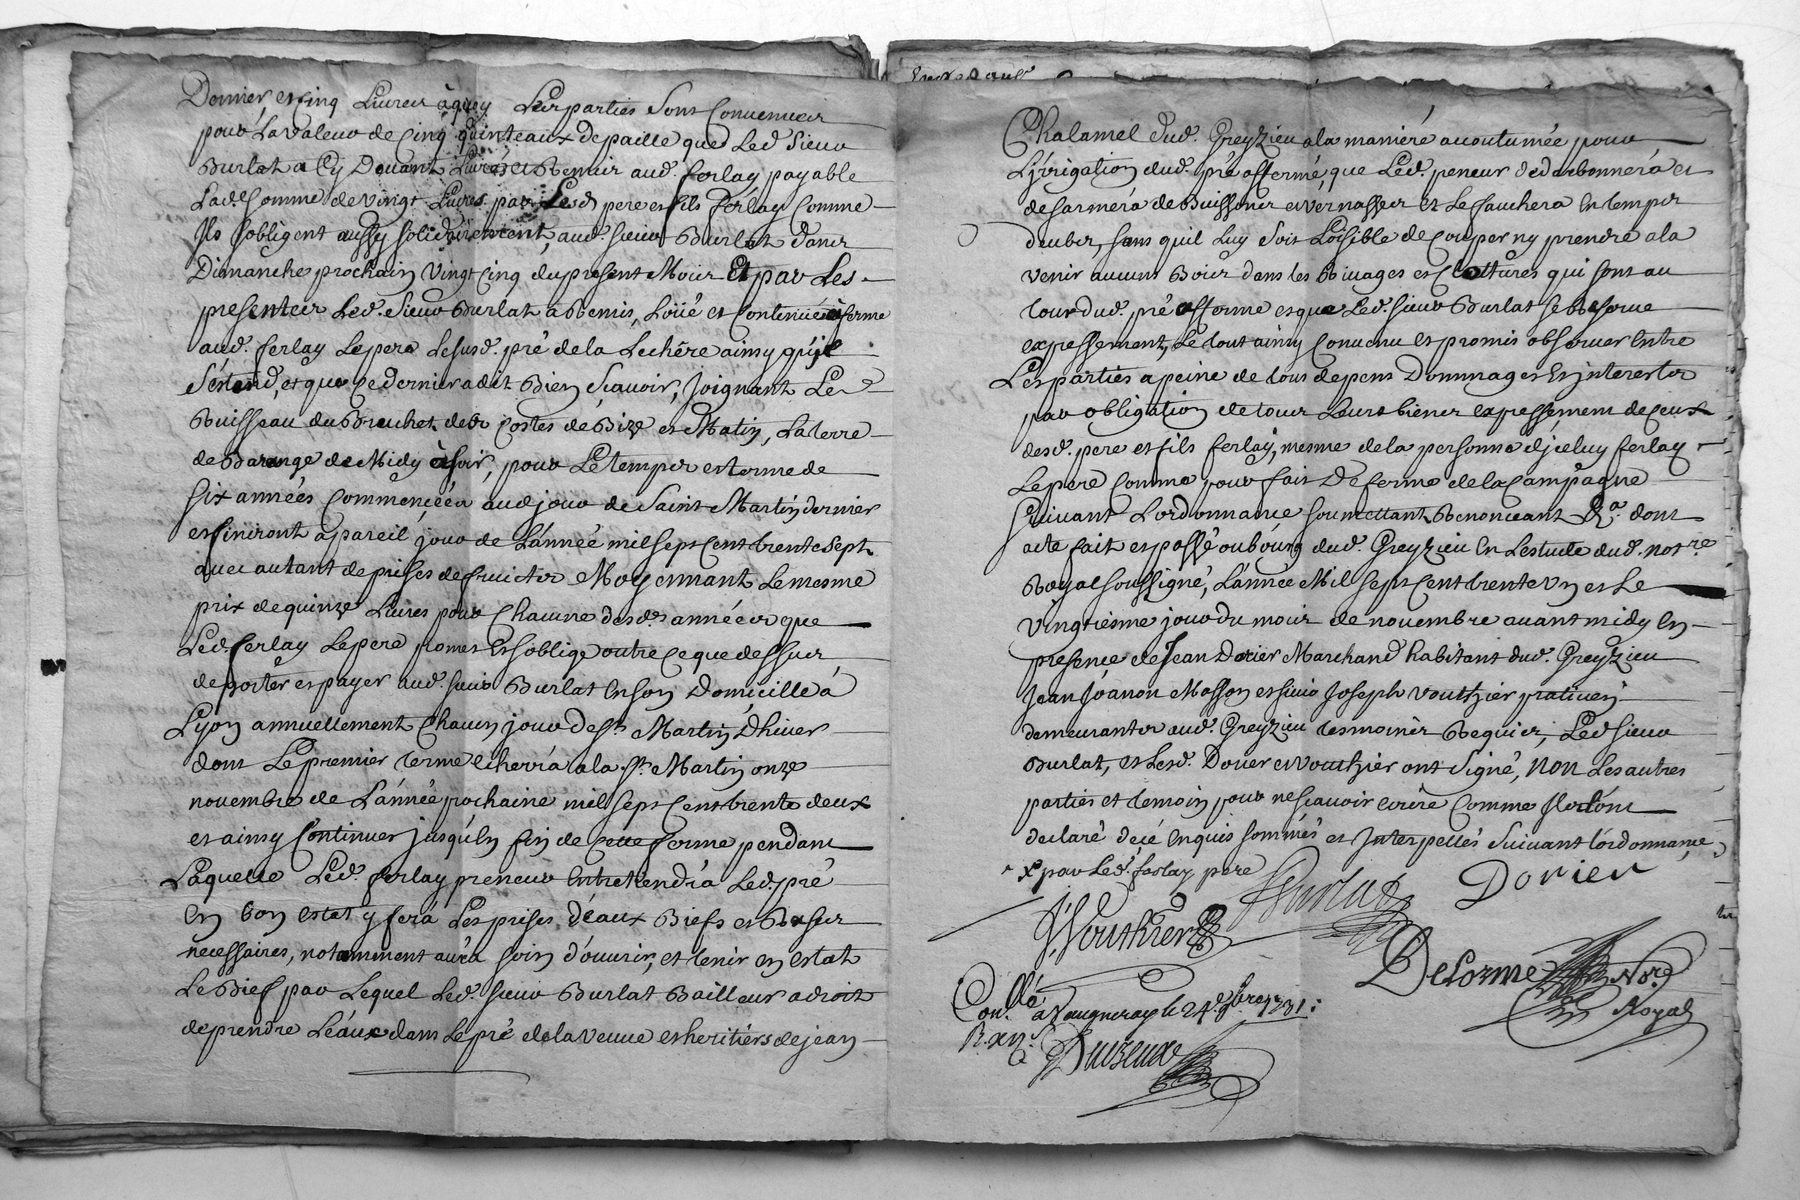 Dernier, et cinq Livres àquoy Les parties sont Convenues
pour La valeur de Cinq quinteaux de paille que Led. Sieur
Burlat a Cy Devant Livrés et Remis aud. ferlay payable
Lad. Somme de vingt Livres par Lesd. pere et fils ferlay Comme
Ils sobligent aussy solidairement, aud. sieur Burlat dans
Dimanche prochain vingt Cinq du present Mois Et par Les
presentes Led. Sieur Burlat a Remis, Loüé et Continué à ferme
aud. ferlay Le pere Le susd. pré de la Lechére ainsy qu'il
S'étend, et que Ce dernier a dit Bien Sçavoir, Joignant Le
Ruisseau du Brechet des Costes de Bize et Matin, La terre
de Barange de Midy et soir, pour Le temps et terme de
six années Commencées aud. jour de Saint Martin dernier
et finiront à pareil jour de L'année mil sept Cent trente sept
avec autant de prises de fruicts Moyennant Le mesme
prix de quinze Livres pour Chacune desd. années que
Led. ferlay Le pere promet Et s'oblige outre Ce que dessus
de porter et payer aud. sieur Burlat En son Domicille à
Lyon annuellement Chacun jour de St. Martin D'hiver
dont Le premier terme Echerra a la St. Martin onze
novembre de L'année prochaine mil sept Cent trente deux
et ainsy Continuer jusqu'En fin de Cette ferme pendant
Laquelle Led. ferlay preneur Entretiendrá Led. pré
En bon estat y fera Les prises d'eaux Biefs et Rases
necessaires, notamment aura soin d'ouvrir, et tenir en estat
Le Bief par Lequel Led. sieur Burlat Bailleur a droit
de prendre L'eau dans Le pré de la veuve et heritiers de jean
Chalamel dud. Greyzieu a la maniére accoutumée pour
L'jrrigation dud. pré affermé, que Led. preneur dedarbonnera et
desarmerá de Buissons et vernasses et Le fauchera En temps
deubs, sans quil Luy soit Loisible de Couper ny prendre a la
venir aucuns Bois dans les Rivages et Clotures qui sont au
tour dud. pré afferme et que Led. sieur Burlat se Reserve
expressement, Le tout ainsy Convenu et promis observer Entre
Les parties a peine de tous depens Dommages Et jnterests
par obligation de tous Leurs biens expressement de Ceux
desd. pere et fils ferlay, mesme de la personne d'jceluy ferlay
Le pere Comme pour fait De ferme de la Campagne
suivant L'ordonnance soumettant Renonceant &a. dont
acte fait et passé au bourg dud. Greyzieu En L'estude dud. notre
Royal soussigné, L'année Mil sept Cent trente Un et Le
vingtiesme jour du mois de novembre avant midy En
presence de Jean Dorier Marchand habitant dud. Greyzieu
Jean Joanon Masson et sieur Joseph vouthier praticien
demeurants aud. Greyzieu tesmoins Requis, Led. sieur
Burlat, et Lesd. Dorier et vouthier ont signé, non Les autres
parties et temoin pour ne scavoir écrire Comme Ils ont
declaré de Cé Enquis sommés et Interpellés suivant L'ordonnance
x par Led. ferlay pere
Burlat Dorier
J. Vouthier
Delorme Nore
Royal
Con.llé à Vaugneray le 24e 9bre 1731:
R. xij s.